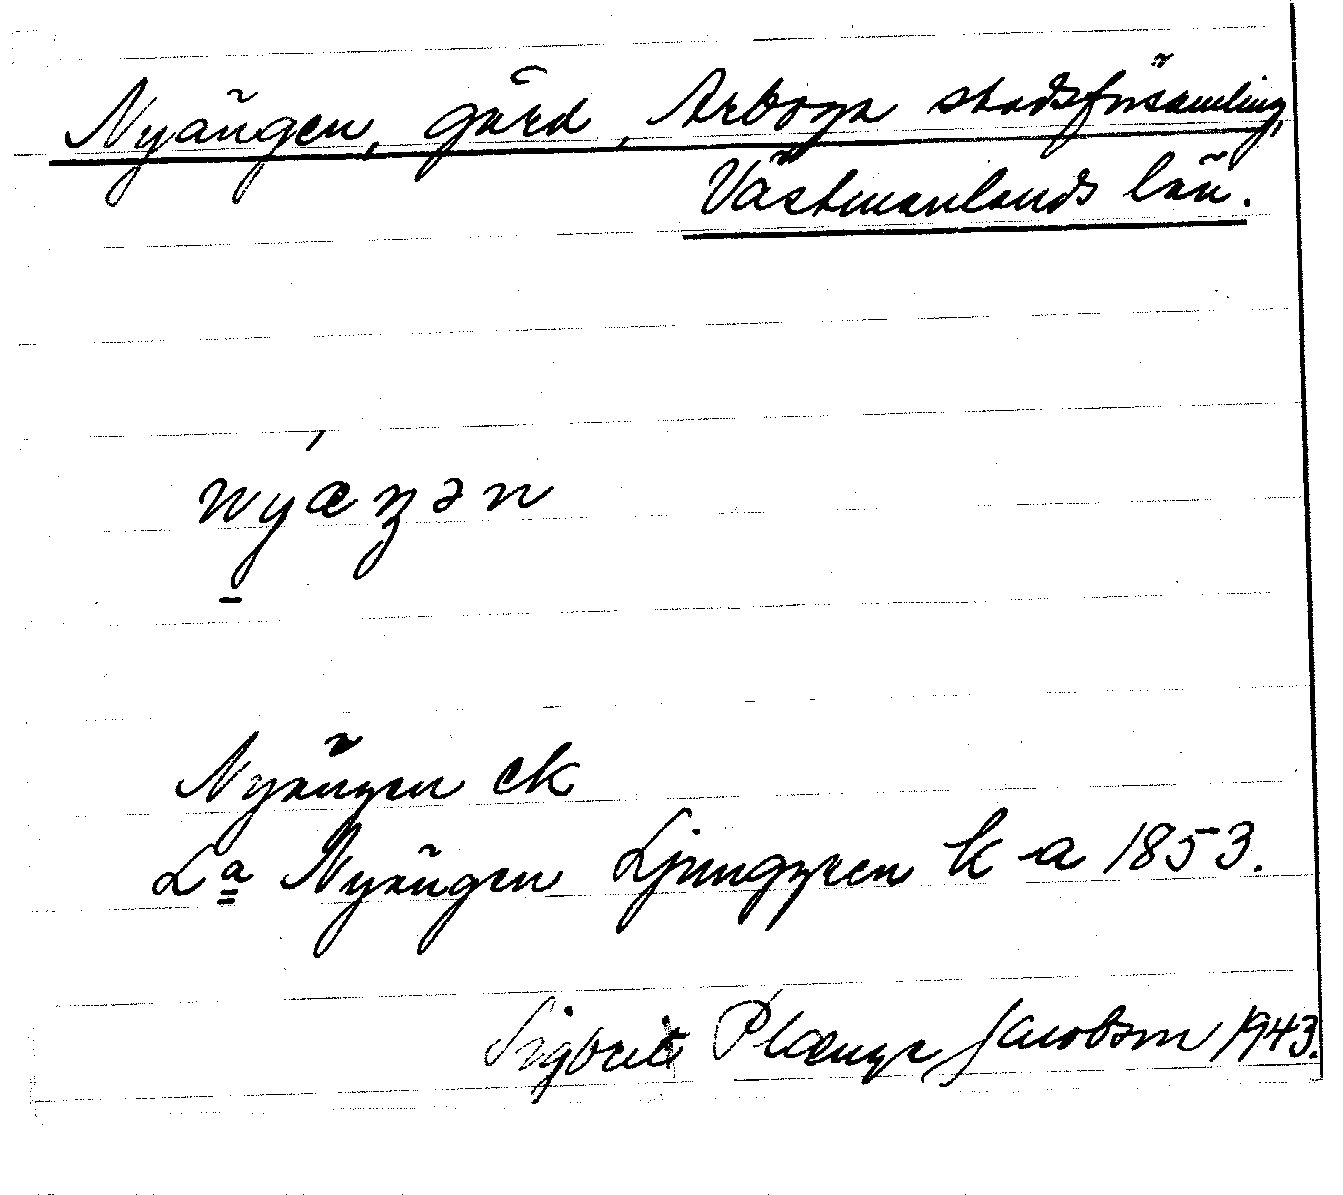 Nyängen, gård, Arboga stadsförsamling,
Västmanlands län.
nyæŋən
Nyängen ek
La Nyängen Ljunggren k a 1853.
Sigbrit Plænge Jacobson 1943.